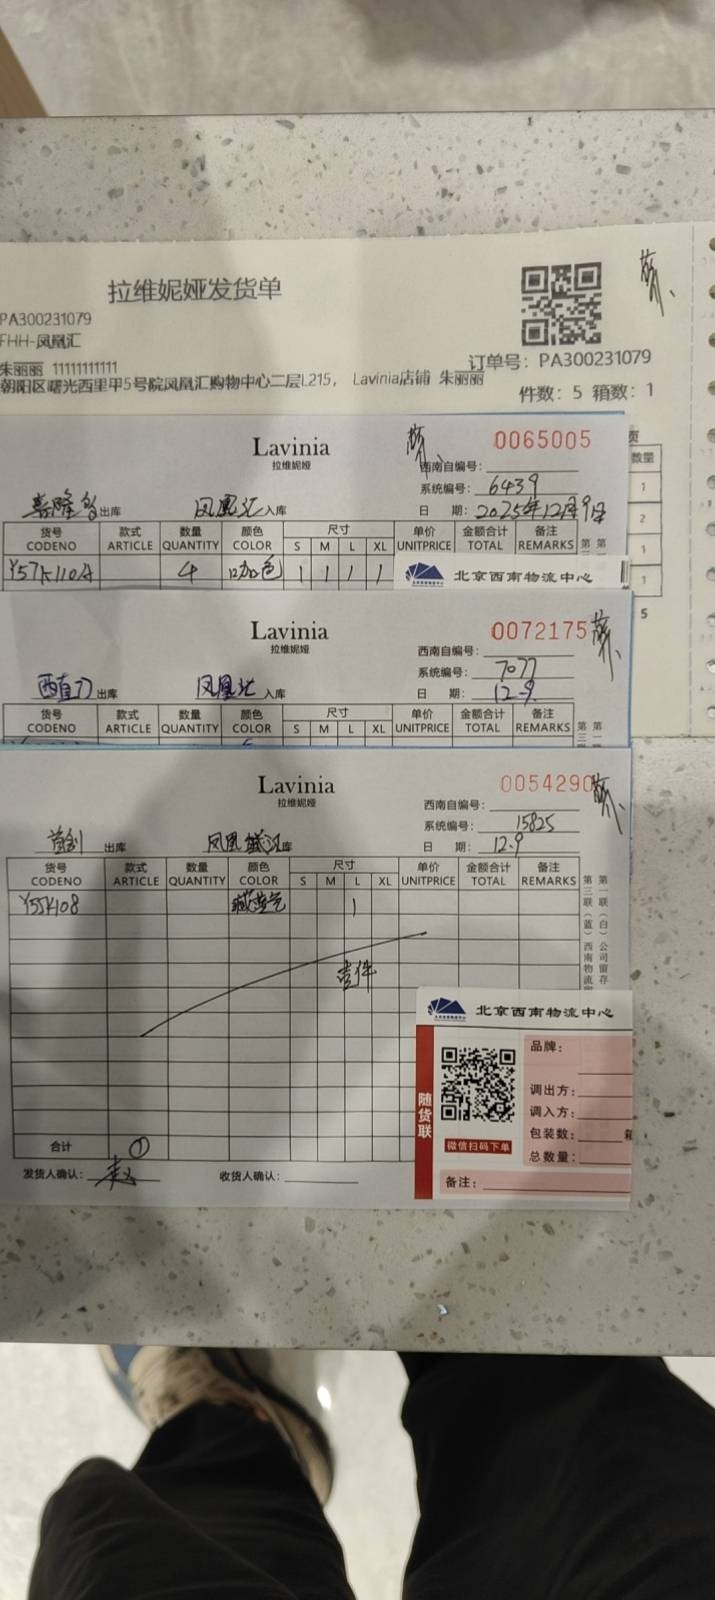 拉维妮娅发货单
PA300231079
FHH-凤凰汇
朱丽丽 11111111111
朝阳区曙光西里甲5号院凤凰汇购物中心二层L215, Lavinia店铺 朱丽丽
订单号: PA300231079
件数: 5 箱数: 1
页
数量
1
2
1
1
5
Lavinia
拉维妮娅
0065005
西南自编号:
系统编号: 6439
出库 凤凰汇入库
日 期: 2025年12月9日
货号 款式 数量 颜色 尺寸 单价 金额合计 备注
CODENO ARTICLE QUANTITY COLOR S M L XL UNITPRICE TOTAL REMARKS
Y57K110A 4 咖色 1 1 1 1
北京西南物流中心
Lavinia
拉维妮娅
0072175
西南自编号:
系统编号: 7077
西直门出库 凤凰汇入库
日 期: 12-9
货号 款式 数量 颜色 尺寸 单价 金额合计 备注
CODENO ARTICLE QUANTITY COLOR S M L XL UNITPRICE TOTAL REMARKS
Lavinia
拉维妮娅
0054290
西南自编号:
系统编号: 15825
出库 凤凰 库
日 期: 12.9
货号 款式 数量 颜色 尺寸 单价 金额合计 备注
CODENO ARTICLE QUANTITY COLOR S M L XL UNITPRICE TOTAL REMARKS
Y55K108 1
壹件
第一联(白)公司留存
第三联(蓝)西南物流
合计 ①
发货人确认:
收货人确认:
北京西南物流中心
随货联
微信扫码下单
品牌:
调出方:
调入方:
包装数: 箱
总数量:
备注: